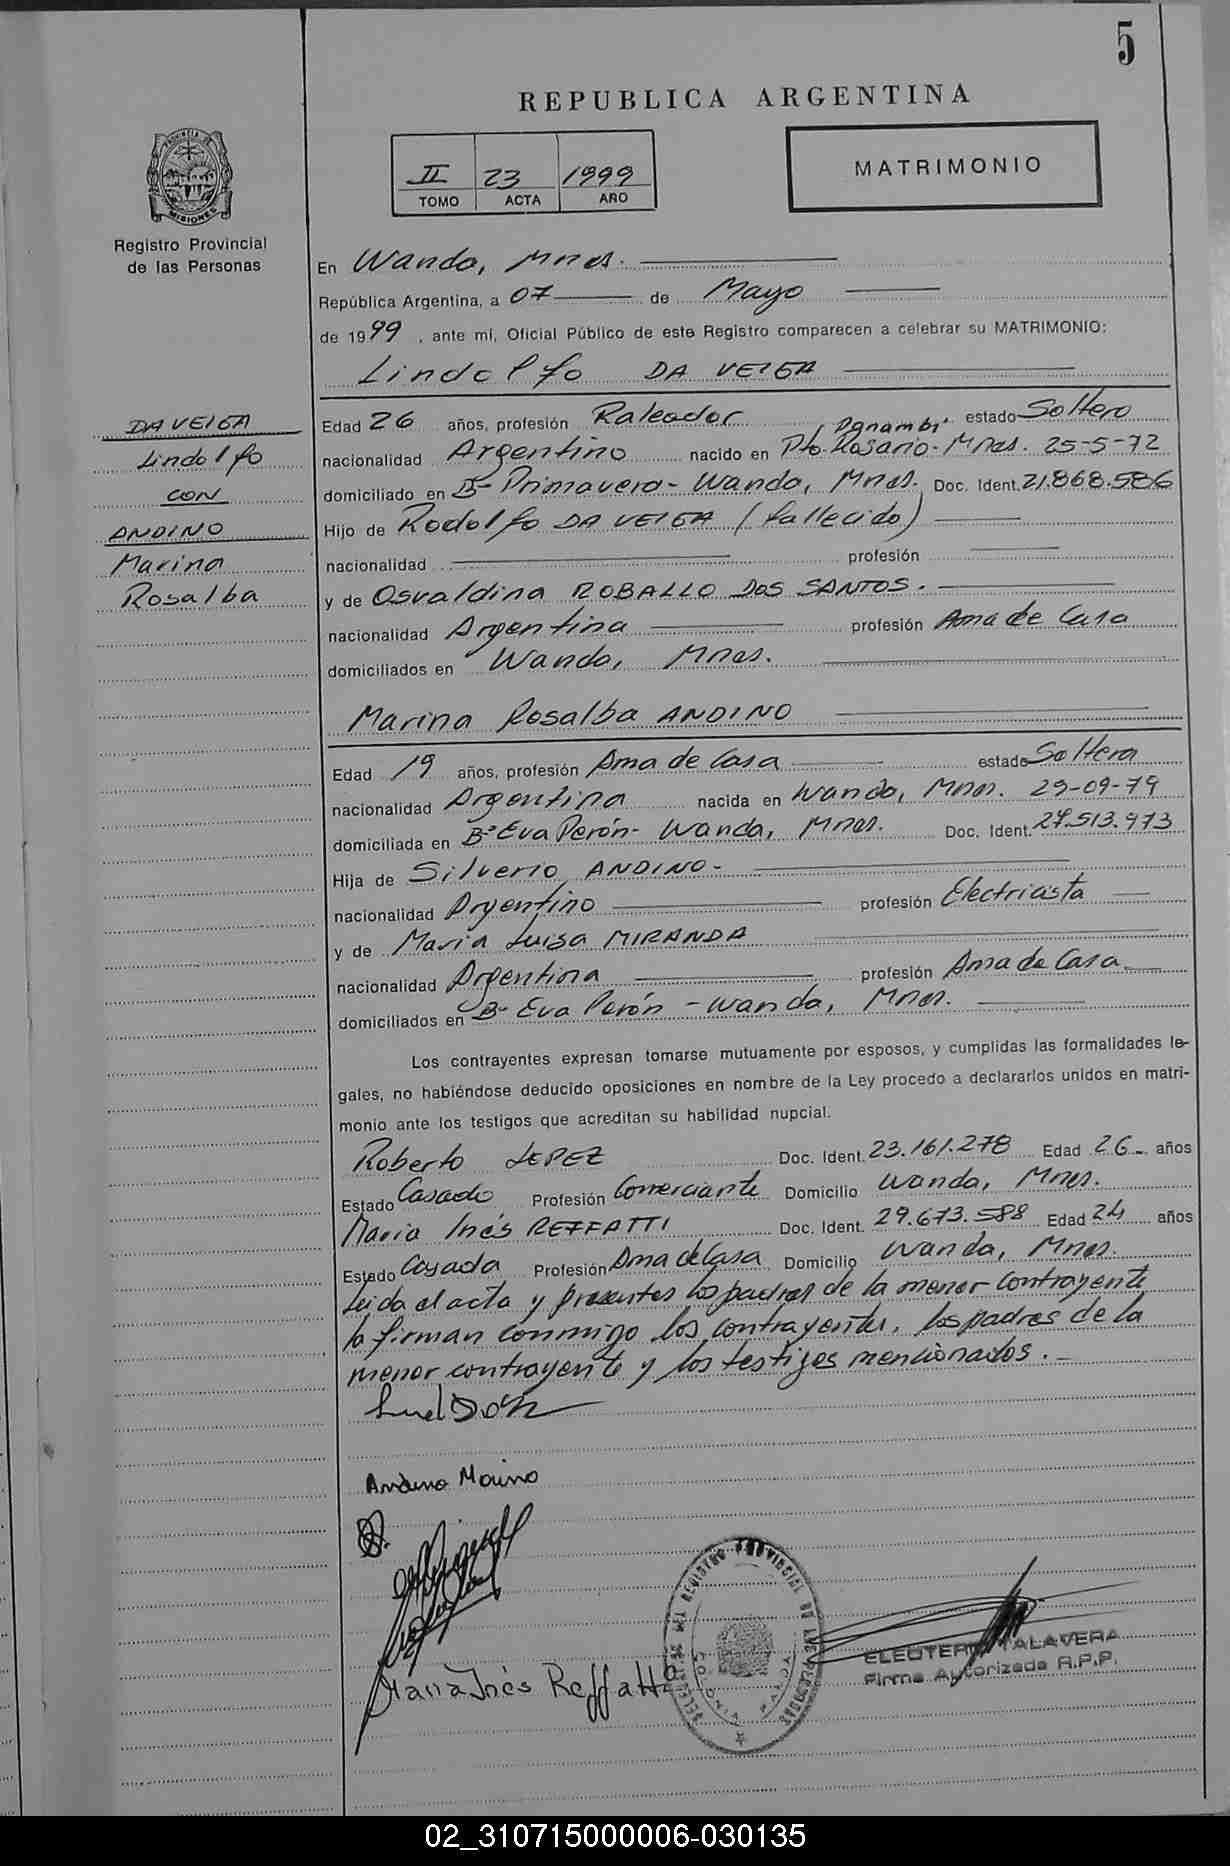 5
REPUBLICA ARGENTINA
II 23 1999
TOMO ACTA AÑO
MATRIMONIO
PROVINCIA DE
MISIONES
Registro Provincial
de las Personas
En Wanda, Mnes.
República Argentina, a 07 de Mayo
de 1999, ante mi, Oficial Público de este Registro comparecen a celebrar su MATRIMONIO:
Lindolfo DA VEIGA
DA VEIGA
Lindolfo
CON
ANDINO
Marina
Rosalba
Edad 26 años, profesión Raleador estado Soltero
Panambí
nacionalidad Argentino nacido en Pto. Rosario - Mnes. 25-5-72
domiciliado en Bº Primavera - Wanda, Mnes. Doc. Ident. 21.868.586
Hijo de Rodolfo DA VEIGA (fallecido)
nacionalidad profesión
y de Osvaldina ROBALLO DOS SANTOS.
nacionalidad Argentina profesión Ama de Casa
domiciliados en Wanda, Mnes.
Marina Rosalba ANDINO
Edad 19 años, profesión Ama de Casa estado Soltera
nacionalidad Argentina nacida en Wanda, Mnes. 29-09-79
domiciliada en Bº Eva Perón - Wanda, Mnes. Doc. Ident. 27.513.973
Hija de Silverio ANDINO -
nacionalidad Argentino profesión Electricista
y de María Luisa MIRANDA
nacionalidad Argentina profesión Ama de Casa
domiciliados en Bº Eva Perón - Wanda, Mnes.
Los contrayentes expresan tomarse mutuamente por esposos, y cumplidas las formalidades le-
gales, no habiéndose deducido oposiciones en nombre de la Ley procedo a declararlos unidos en matri-
monio ante los testigos que acreditan su habilidad nupcial.
Roberto LEPEZ Doc. Ident. 23.161.278 Edad 26 años
Estado Casado Profesión Comerciante Domicilio Wanda, Mnes.
María Inés REFFATTI Doc. Ident. 29.673.588 Edad 24 años
Estado Casada Profesión Ama de Casa Domicilio Wanda, Mnes.
Leida el acta y presentes los padres de la menor contrayente
la firman conmigo los contrayentes, los padres de la
menor contrayente y los testigos mencionados. -
Andino Marina
María Inés Reffatti
DEL REGISTRO PROVINCIAL DE LAS PERSONAS
COLONIA
ELEUTERIO TALAVERA
Firma Autorizada R.P.P.
02_310715000006-030135